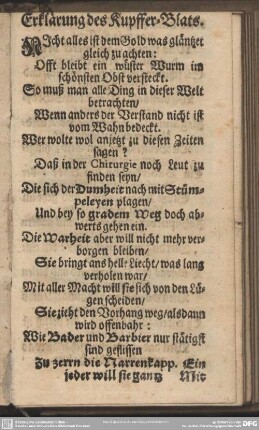 Erklärung des Kupffer-Blats.
NIcht alles ist dem Gold was gläntzet
gleich zu achten:
Offt bleibt ein wüster Wurm im
schönsten Obst versteckt.
So muß man alle Ding in dieser Welt
betrachten/
Wenn anders der Verstand nicht ist
vom Wahn bedeckt.
Wer wolte wol anjetzt zu diesen Zeiten
sagen?
Daß in der Chirurgie noch Leut zu
finden seyn/
Die sich der Dumheit nach mit Stüm-
peleyen plagen/
Und bey so gradem Weg doch ab-
werts gehen ein.
Die Warheit aber will nicht mehr ver-
borgen bleiben/
Sie bringt ans helle Liecht/ was lang
verholen war/
Mit aller Macht will sie sich von den Lü-
gen scheiden/
Sie zieht den Vorhang weg/ alsdann
wird offenbahr:
Wie Bader und Barbier nur stätigst
sind geflissen
Zu zerrn die Narrenkapp. Ein
jeder will sie gantz Mit
DFG